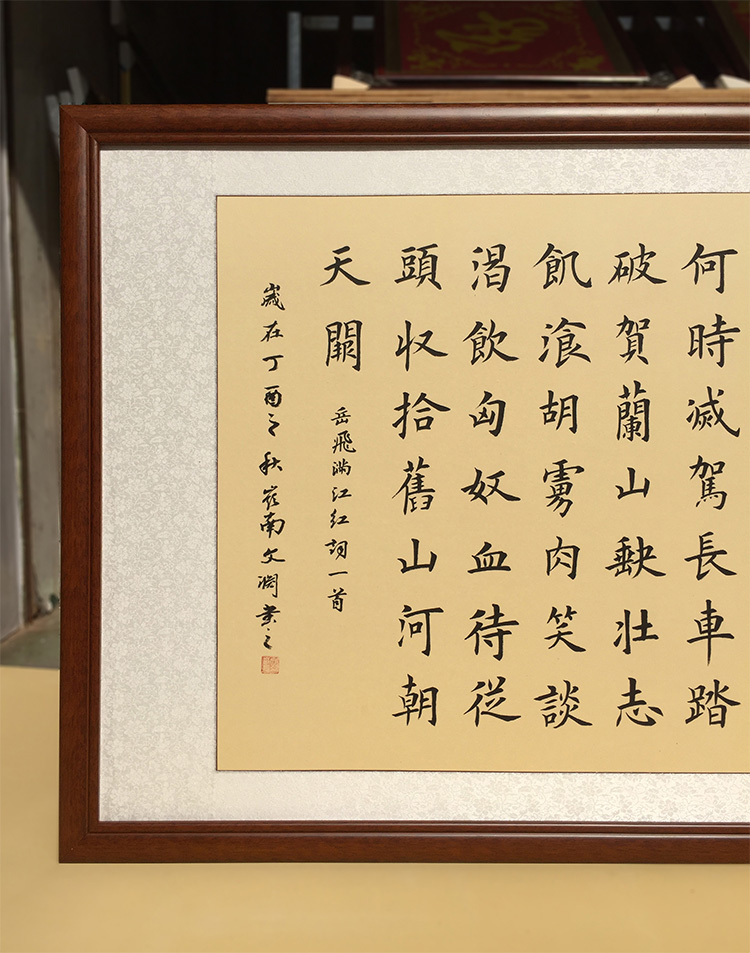 何時滅駕長車踏
破賀蘭山缺壯志
飢湌胡虜肉笑談
渴飲匈奴血待從
頭収拾舊山河朝
天闕
岳飛滿江紅詞一首
歲在丁酉之秋嶺南文淵書之